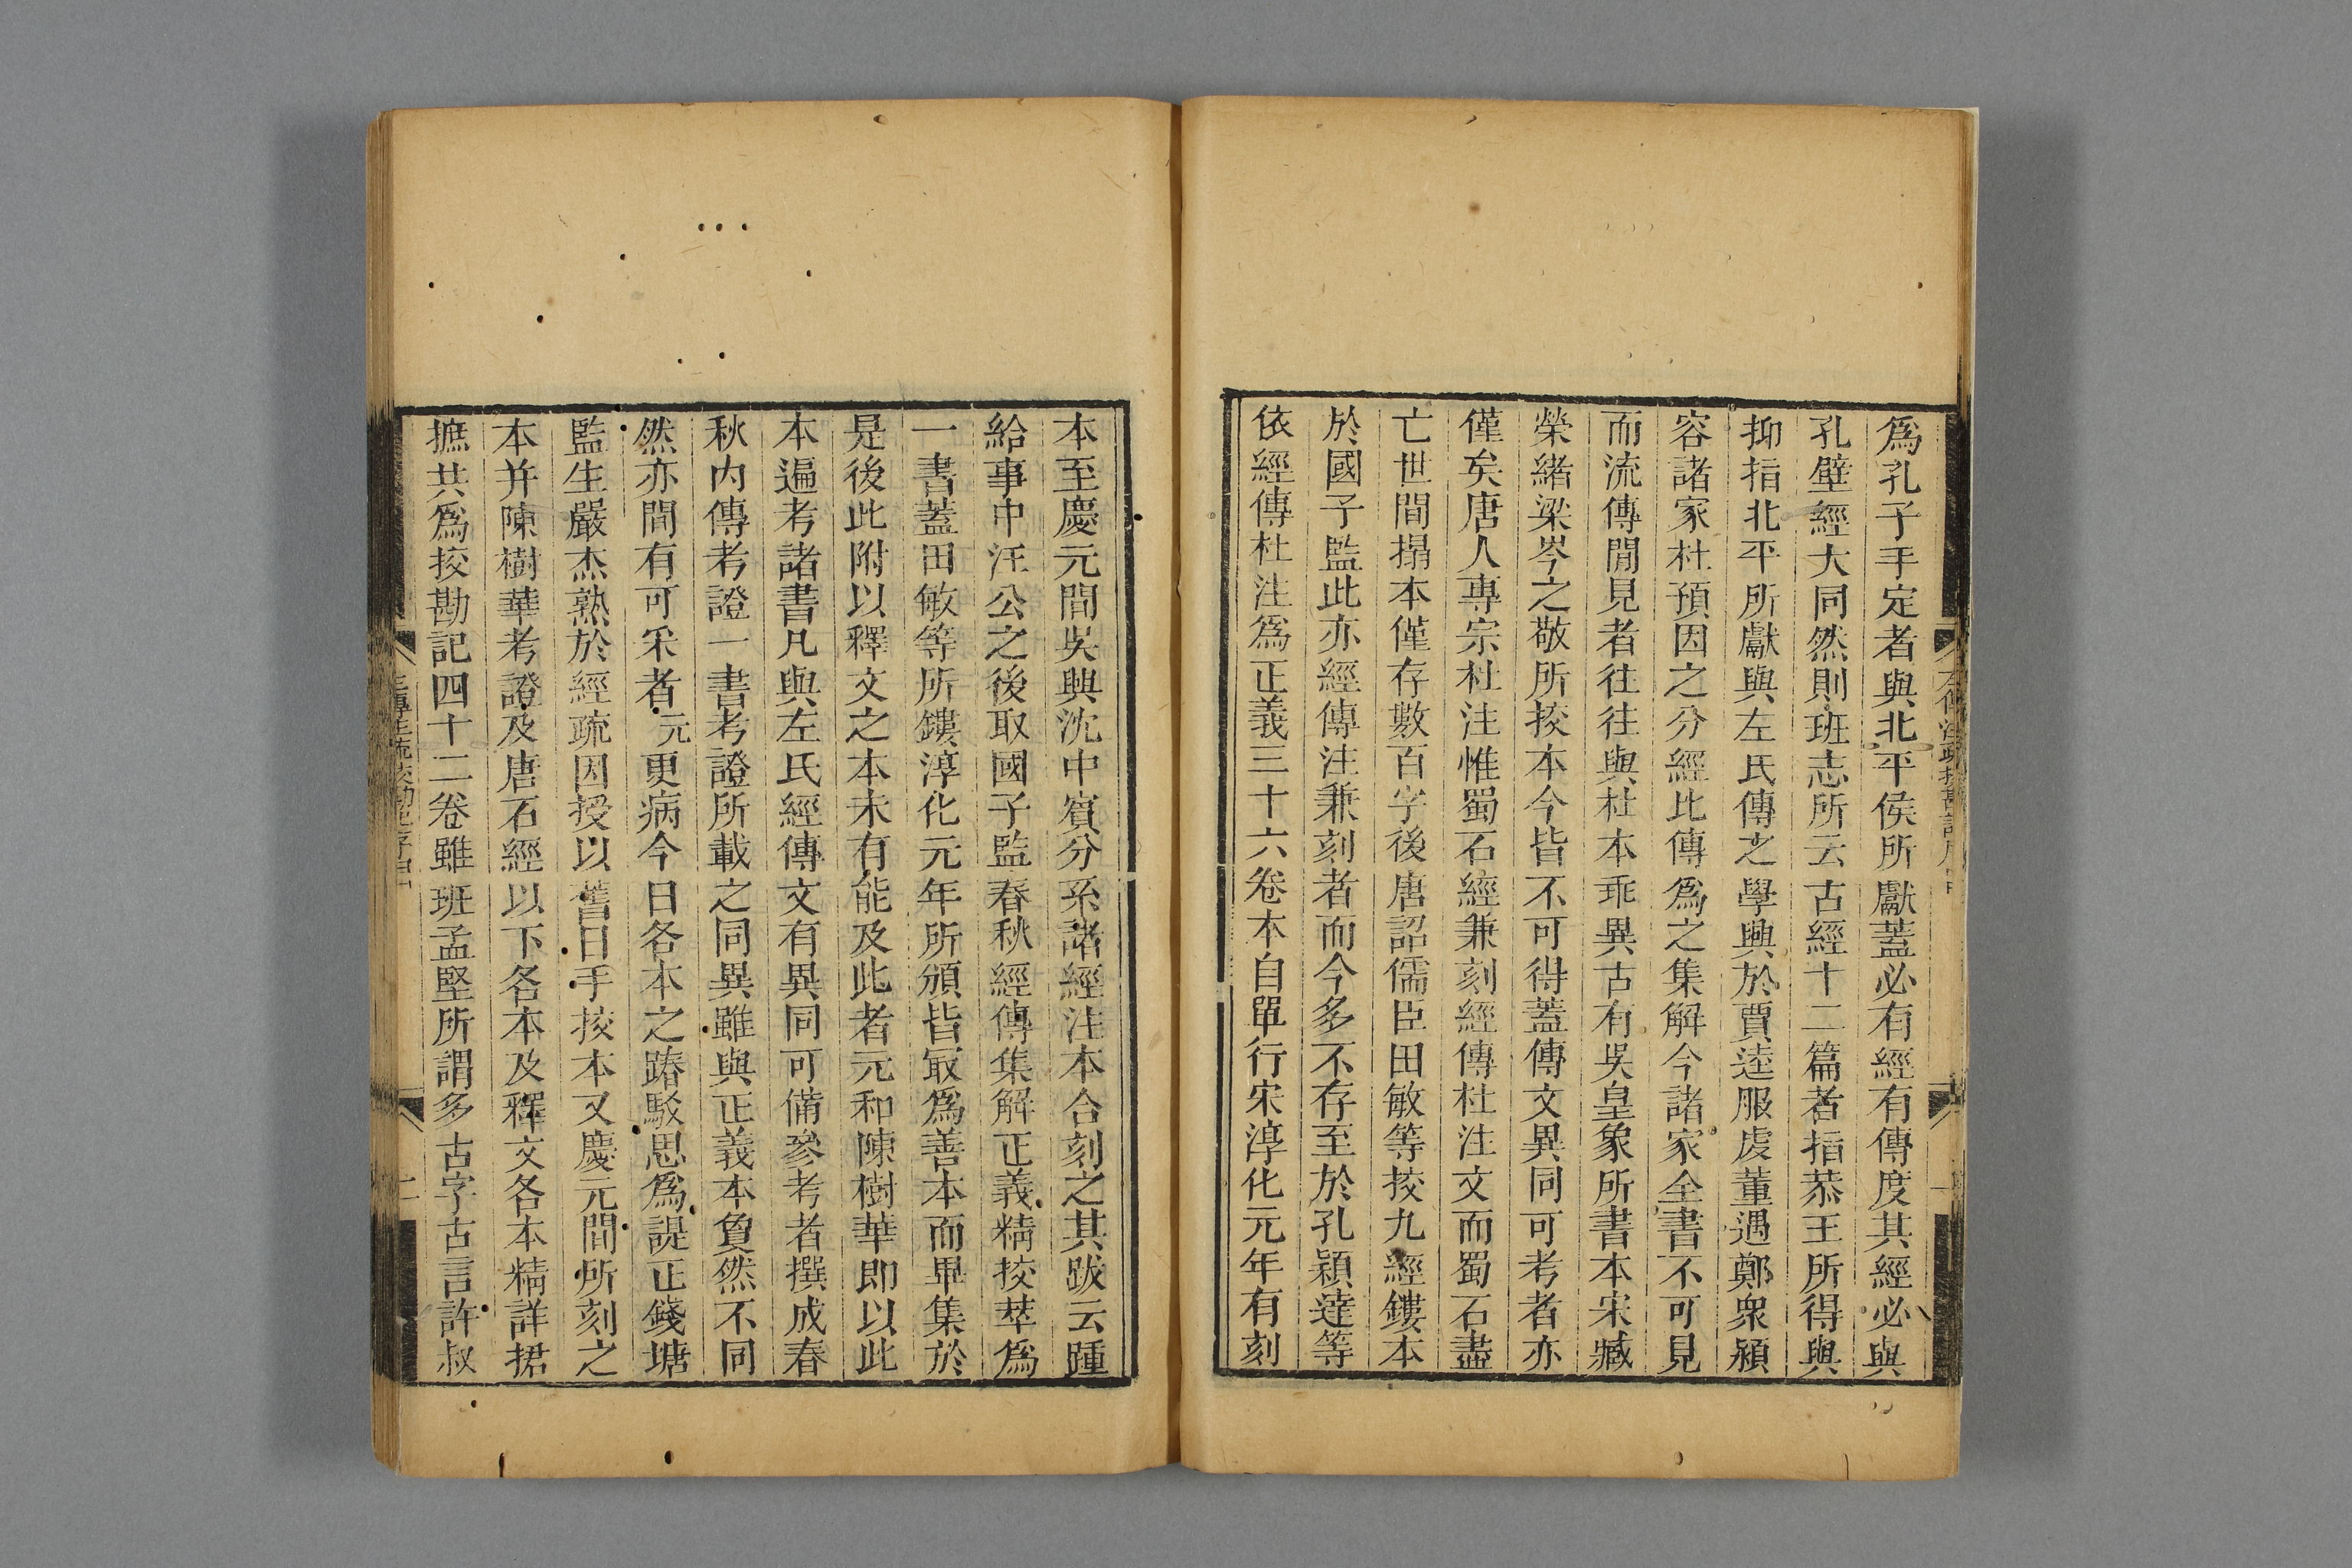 爲孔子手定者與北平侯所獻蓋必有經有傳度其經必與
孔壁經大同然則班志所云古經十二篇者指恭王所得與
抑指北平所獻與左氏傳之學興於賈逵服虔董遇鄭衆潁
容諸家杜預因之分經比傳爲之集解今諸家全書不可見
而流傳閒見者往往與杜本乖異古有吳皇象所書本宋臧
榮緒梁岑之敬所挍本今皆不可得蓋傳文異同可考者亦
僅矣唐人專宗杜注惟蜀石經兼刻經傳杜注文而蜀石盡
亡世間搨本僅存數百字後唐詔儒臣田敏等挍九經鏤本
於國子監此亦經傳注兼刻者而今多不存至於孔穎達等
依經傳杜注爲正義三十六卷本自單行宋淳化元年有刻
本至慶元間吳興沈中賓分系諸經注本合刻之其跋云踵
給事中汪公之後取國子監春秋經傳集解正義精挍萃爲
一書蓋田敏等所鏤淳化元年所頒皆冣爲善本而畢集於
是後此附以釋文之本未有能及此者元和陳樹華即以此
本遍考諸書凡與左氏經傳文有異同可備參考者撰成春
秋內傳考證一書考證所載之同異雖與正義本敻然不同
然亦間有可采者元更病今日各本之踳駁思爲諟正錢塘
監生嚴杰熟於經疏因授以舊日手挍本又慶元間所刻之
本并陳樹華考證及唐石經以下各本及釋文各本精詳捃
摭共爲挍勘記四十二卷雖班孟堅所謂多古字古言許叔